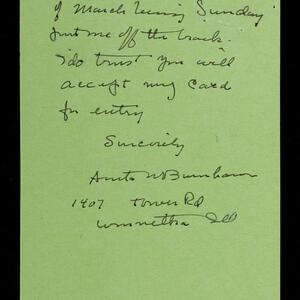 of March being Sunday
put me off the track.
I do trust you will
accept my card
for entry
Sincerely
Anita W Burnham
1407 Tower Rd
Winnetka Ill